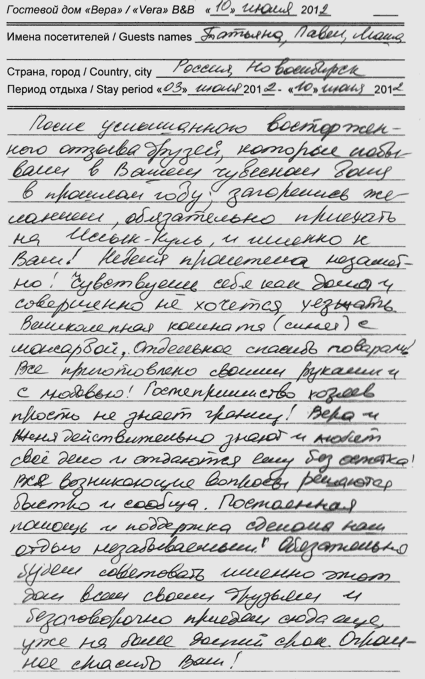 Гостевой дом «Вера» / «Vera» B&B « 10 » июля 2012
Имена посетителей / Guests names Татьяна, Павел, Маша
Страна, город / Country, city Россия, Новосибирск
Период отдыха / Stay period «03» июля 2012 - «10» июля 2012
После услышанного восторжен-
ного отзыва друзей, которые побы
вали в Вашем чудесном доме
в прошлом году, загорелись же-
ланием, обязательно приехать
на Иссык-Куль, и именно к
Вам! Неделя пролетела незамет-
но! Чувствуешь себя как дома и
совершенно не хочется уезжать.
Великолепная комната (синяя) с
мансардой. Отдельное спасибо поварам!
Все приготовлено своими руками и
с любовью! Гостеприимство хозяев
просто не знает границ! Вера и
Женя действительно знают и любят
своё дело и отдаются ему без остатка!
Все возникающие вопросы решаются
быстро и сообща. Постоянная
помощь и поддержка сделала наш
отдых незабываемым! Обязательно
будем советовать именно этот
дом всем своим друзьям и
безоговорочно приедем сюда еще,
уже на более долгий срок. Огром-
ное спасибо Вам!